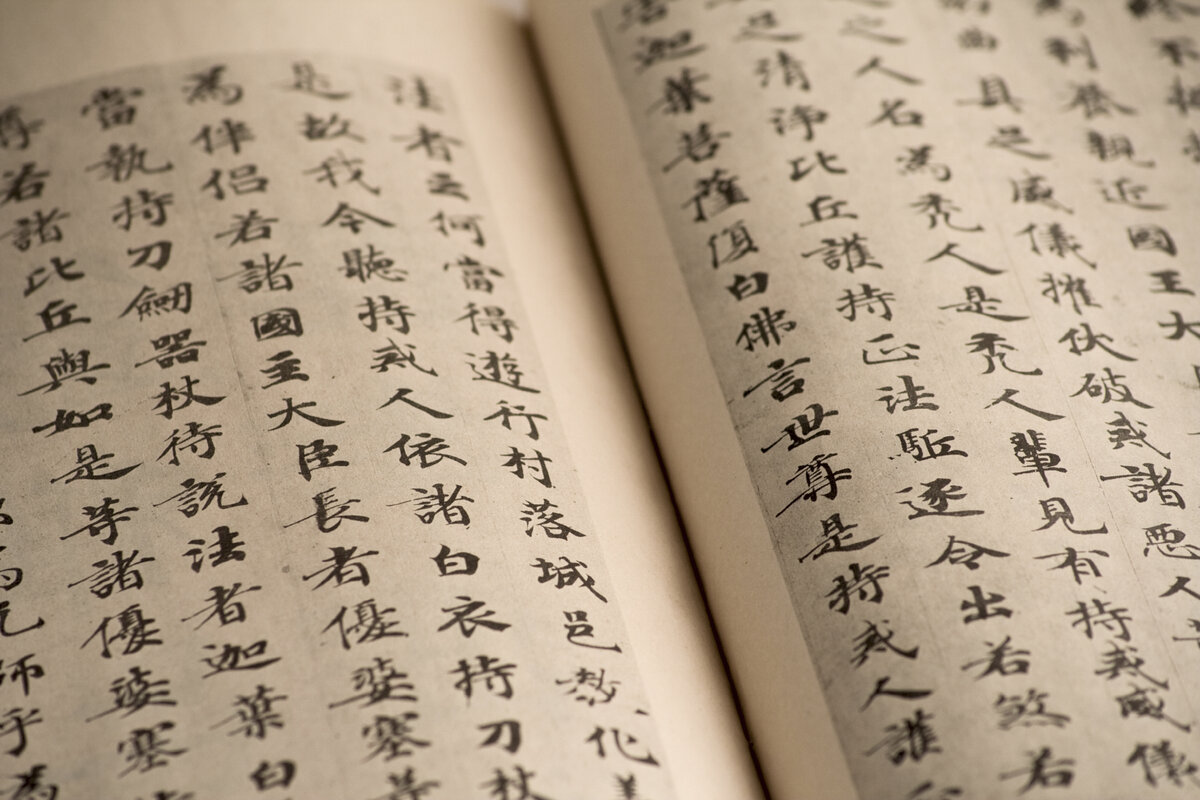 利養親近國王大
具足威儀摧伏破戒諸惡人
之人名為禿人是禿人輩見有持戒威儀
足清淨比丘護持正法駈逐令出若煞若
迦葉菩薩復白佛言世尊是持戒人護
法者云何當得遊行村落城邑教化
是故我今聽持戒人依諸白衣持刀杖
為伴侶若諸國主大臣長者優婆塞等
當執持刀劒器杖待說法者迦葉白
尊若諸比丘與如是等諸優婆塞
師乎為